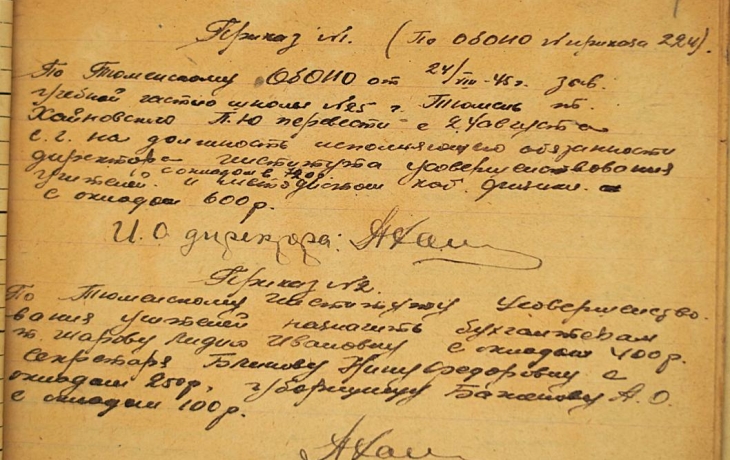 Приказ №1. (По ОблОНО № приказа 224).
По Тюменскому ОблОНО от 24/VIII-45 г. зав.
учебной частью школы №25 г. Тюмень т.
Хайновского П.Ю перевести с 24 августа
с.г. на должность исполняющего обязанности
директора института усовершенствования
с окладом в 720 р.
учителей и методистом каб. физики
с окладом 600 р.
И.О директора:
Приказ №2.
По Тюменскому институту усовершенство-
вания учителей назначить бухгалтером
т. Шарову Лидию Ивановну с окладом 400 р.
Секретаря Блинову Нину Федоровну с
окладом 250 р, уборщицу Баженову А.О.
с окладом 100 р.